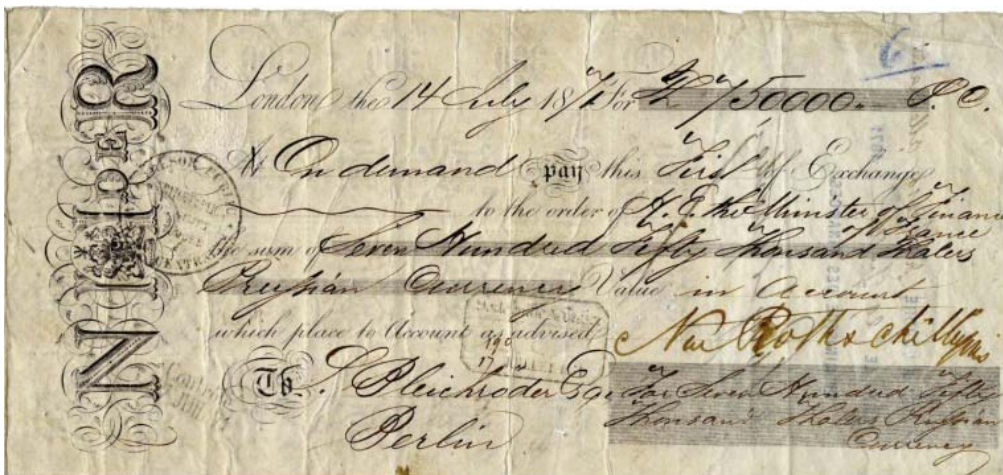 London the 14 July 1871 For 750000. P.C.
On demand pay this First of Exchange
to the order of H. E. the Minister of Finance
of France
the sum of Seven Hundred Fifty Thousand Thalers
Prussian Currency Value in Account
which place to Account as advised
To S. Bleichroder Esqe For Seven Hundred Fifty
Thousand Thalers Prussian
Berlin
Currency